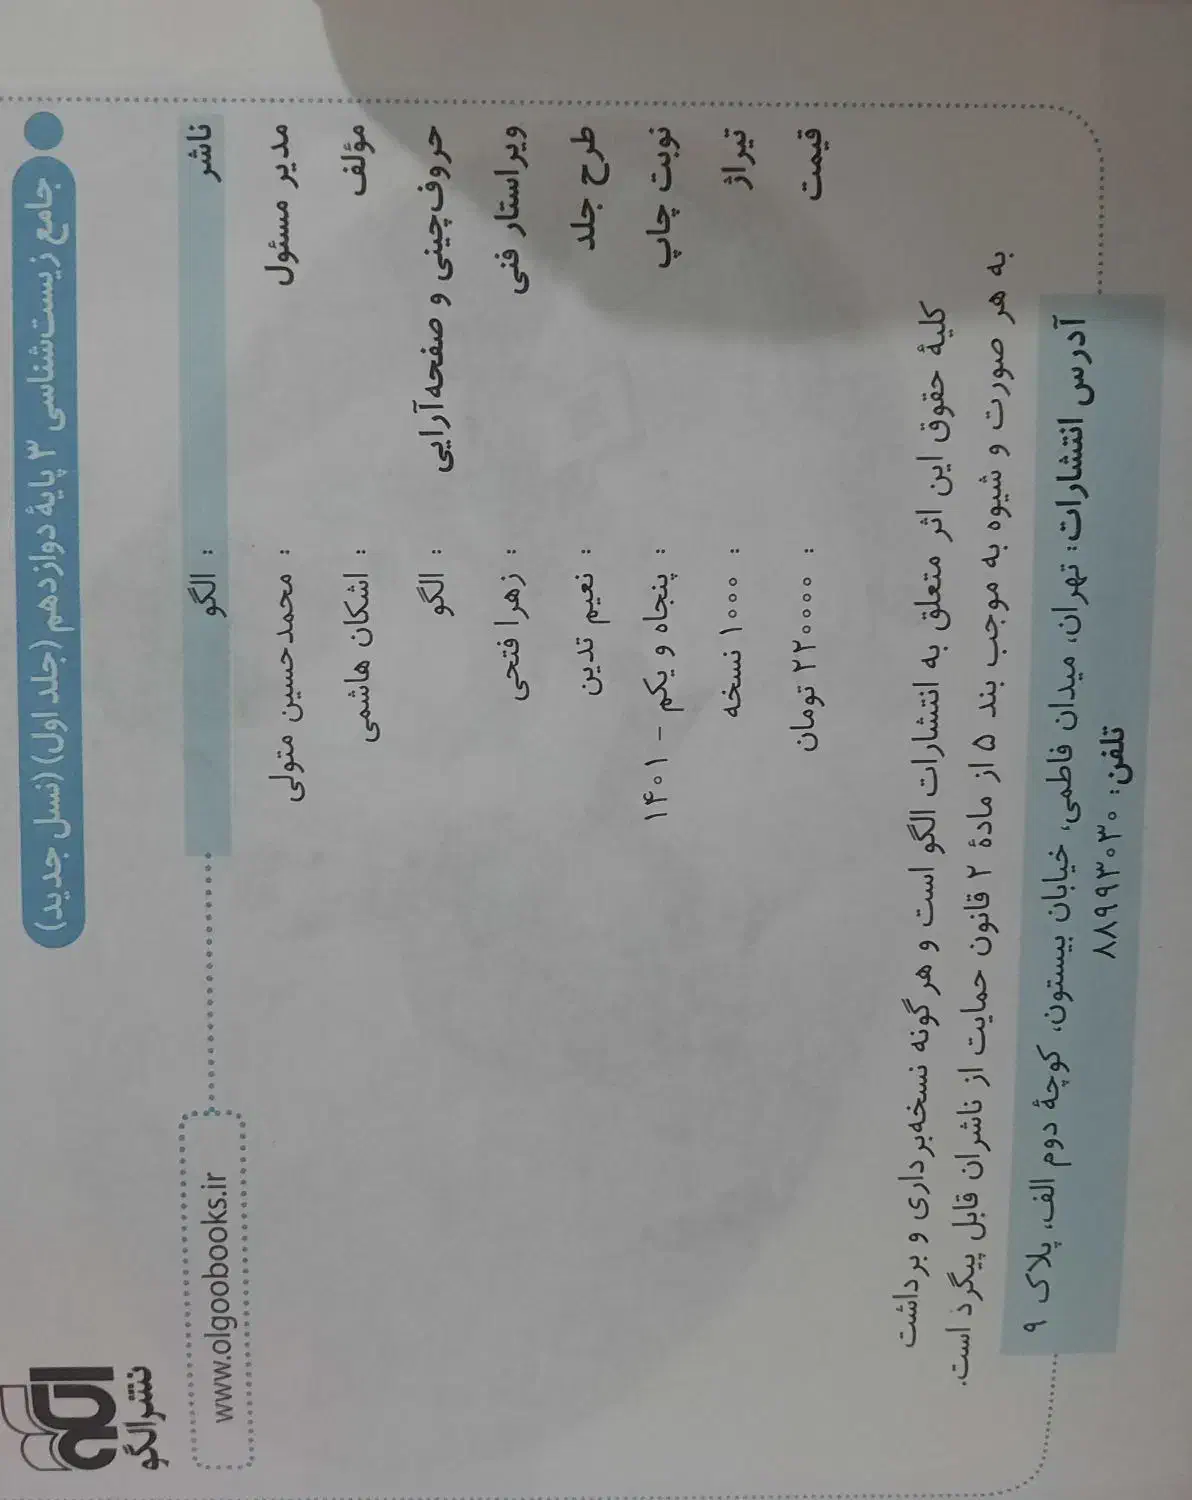 جامع زیست‌شناسی ۳ پایهٔ دوازدهم (جلد اول) (نسل جدید)
نشر الگو
www.olgoobooks.ir
ناشر : الگو
مدیر مسئول : محمدحسین متولی
مؤلف : اشکان هاشمی
حروف‌چینی و صفحه‌آرایی : الگو
ویراستار فنی : زهرا فتحی
طرح جلد : نعیم تدین
نوبت چاپ : پنجاه و یکم - ۱۴۰۱
تیراژ : ۱۰۰۰ نسخه
قیمت : ۲۲۰۰۰۰ تومان
کلیهٔ حقوق این اثر متعلق به انتشارات الگو است و هرگونه نسخه‌برداری و برداشت
به هر صورت و شیوه به موجب بند ۵ از مادهٔ ۲ قانون حمایت از ناشران قابل پیگرد است.
آدرس انتشارات: تهران، میدان فاطمی، خیابان بیستون، کوچهٔ دوم الف، پلاک ۹
تلفن: ۸۸۹۹۳۰۳۰